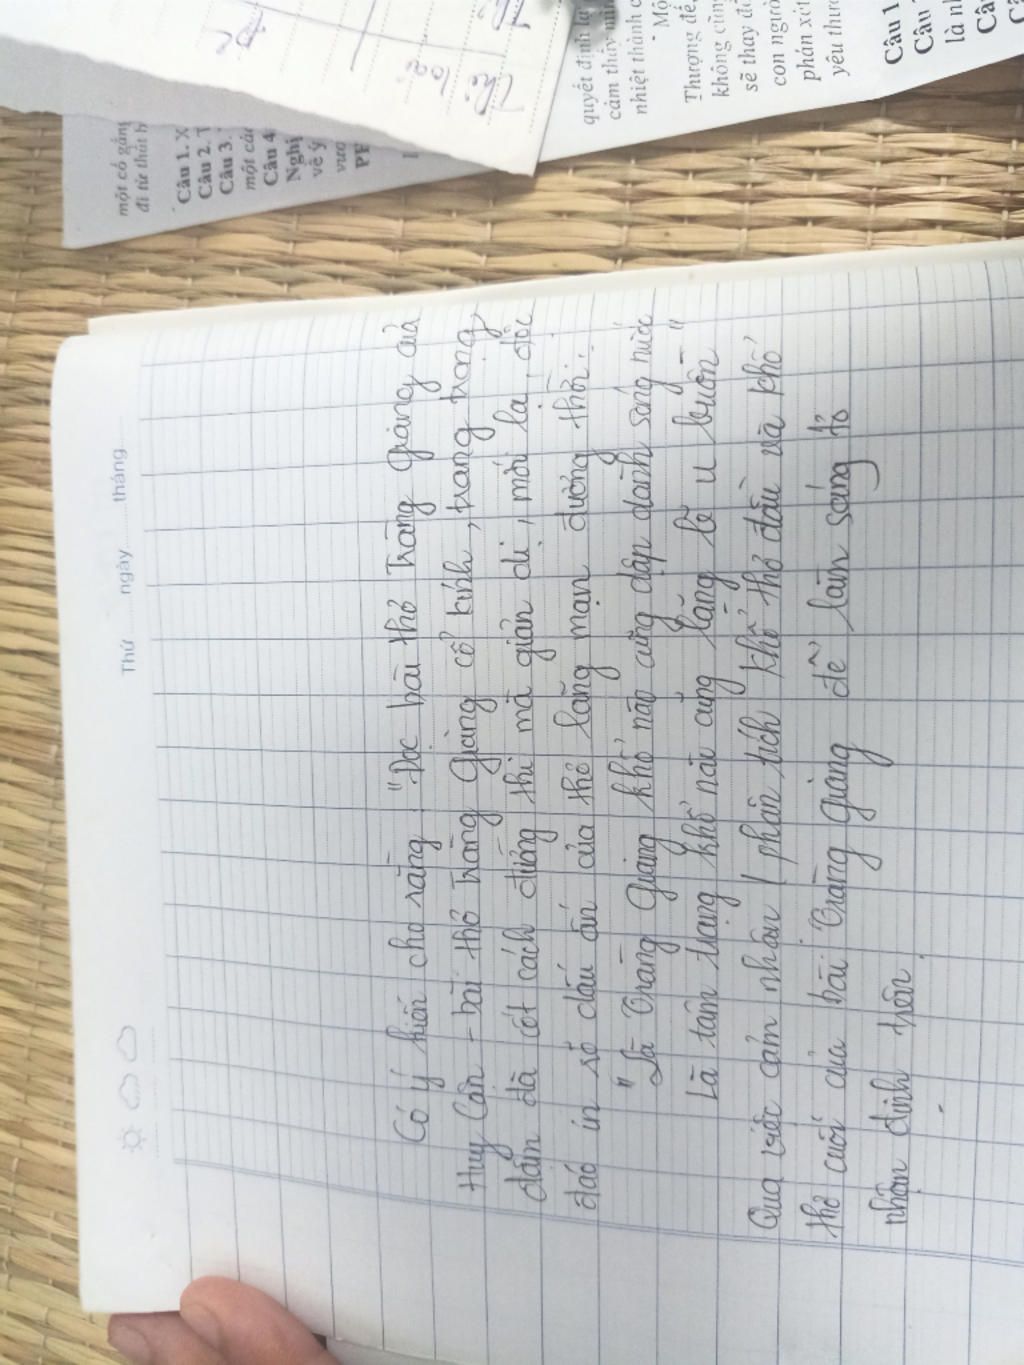 một cố gắng
đi từ thất b
Câu 1. X
Câu 2. T
Câu 3.
một các
Câu 4
Nghị
về ý
vươ
quyết định
cảm thấy
nhiệt thành c
Mộ
Thượng đế,
không cùng
sẽ thay đổ
con người
phán xét
yêu thươ
Câu 1
Câu
là nh
Câ
Thứ ........ ngày ........ tháng
Có ý kiến cho rằng : "Đọc bài thơ Tràng giang của
Huy Cận - bài thơ Tràng Giang cổ kính, trang trọng,
đậm đà cốt cách đường thi mà giản dị, mới lạ, độc
đáo in rõ dấu ấn của thơ lãng mạn đương thời :
"Là Tràng Giang khổ nào cũng dập dành sóng nước
Là tâm trạng khổ nào cũng lặng lẽ u buồn"
Qua việc cảm nhận / phân tích khổ thơ đầu và khổ
thơ cuối của bài Tràng Giang để làm sáng tỏ
nhận định trên.